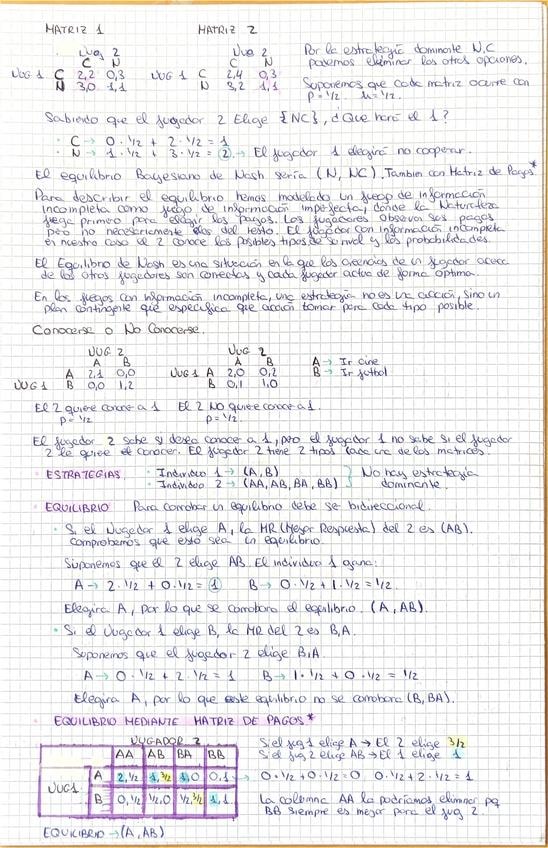 MATRIZ 1 MATRIZ 2
Jug 2 Jug 2
C N C N
JUG 1 C 2,2 0,3 JUG 1 C 2,4 0,3
N 3,0 1,1 N 3,2 1,1
Por la estrategia dominante N,C
podemos eliminar los otros opciones.
Suponemos que cada matriz ocurre con
p = 1/2. 1-p = 1/2.
Sabiendo que el jugador 2 Elige {NC}, ¿Que hará el 1?
· C → 0·1/2 + 2·1/2 = 1
· N → 1·1/2 + 3·1/2 = 2 → El jugador 1 elegirá no cooperar.
El equilibrio Bayesiano de Nash sería (N, NC). Tambien con Matriz de Pagos*
Para describir el equilibrio hemos modelado un juego de información
incompleta como juego de información imperfecta, donde la Naturaleza
juega primero para elegir los pagos. Los jugadores observan sus pagos
pero no necesariamente los del resto. El jugador con información incompleta
en nuestro caso el 2 conoce los posibles tipos de su rival y los probabilidades.
El Equilibrio de Nash es una situación en la que los creencias de un jugador acerca
de los otros jugadores son correctas y cada jugador actua de forma optima.
En los juegos con información incompleta, una estrategia no es una acción, sino un
plan contingente que especifica que acción tomar para cada tipo posible.
Conocerse o No Conocerse.
JUG 2 JUG 2
A B A B
A 2,1 0,0 JUG 1 A 2,0 0,2 A → Ir cine
JUG 1 B 0,0 1,2 B 0,1 1,0 B → Ir futbol
El 2 quiere conocer a 1 El 2 NO quiere conocer a 1.
p = 1/2 p = 1/2.
El jugador 2 sabe si desea conocer a 1, pero el jugador 1 no sabe si el jugador
2 le quiere el conocer. El jugador 2 tiene 2 tipos cada una de los matrices.
· ESTRATEGIAS · Individuo 1 → (A, B) No hay estrategia
· Individuo 2 → (AA, AB, BA, BB) dominante.
· EQUILIBRIO Para corroborar un equilibrio debe ser bidireccional.
· Si el Jugador 1 elige A, la MR (Mejor Respuesta) del 2 es (AB).
Comprobemos que esto sea un equilibrio.
Suponemos que el 2 elige AB. El individuo 1 gana:
A → 2·1/2 + 0·1/2 = 1 B → 0·1/2 + 1·1/2 = 1/2.
Elegira A, por lo que se corrobora el equilibrio. (A, AB).
· Si el Jugador 1 elige B, la MR del 2 es B,A.
Suponemos que el jugador 2 elige B,A.
A → 0·1/2 + 2·1/2 = 1 B → 1·1/2 + 0·1/2 = 1/2
Elegira A, por lo que este equilibrio no se corrobora (B, BA).
· EQUILIBRIO MEDIANTE MATRIZ DE PAGOS*
JUGADOR 2
AA AB BA BB
JUG 1 A 2,1/2 1,3/2 1,0 0,1
B 0,1/2 1/2,0 1/2,3/2 1,1
Si el jug 1 elige A → El 2 elige 3/2
Si el jug 2 elige AB → El 1 elige 1
0·1/2 + 0·1/2 = 0 0·1/2 + 2·1/2 = 1
La columna AA la podríamos eliminar pq
BB siempre es mejor para el jug 2.
EQUILIBRIO → (A, AB)